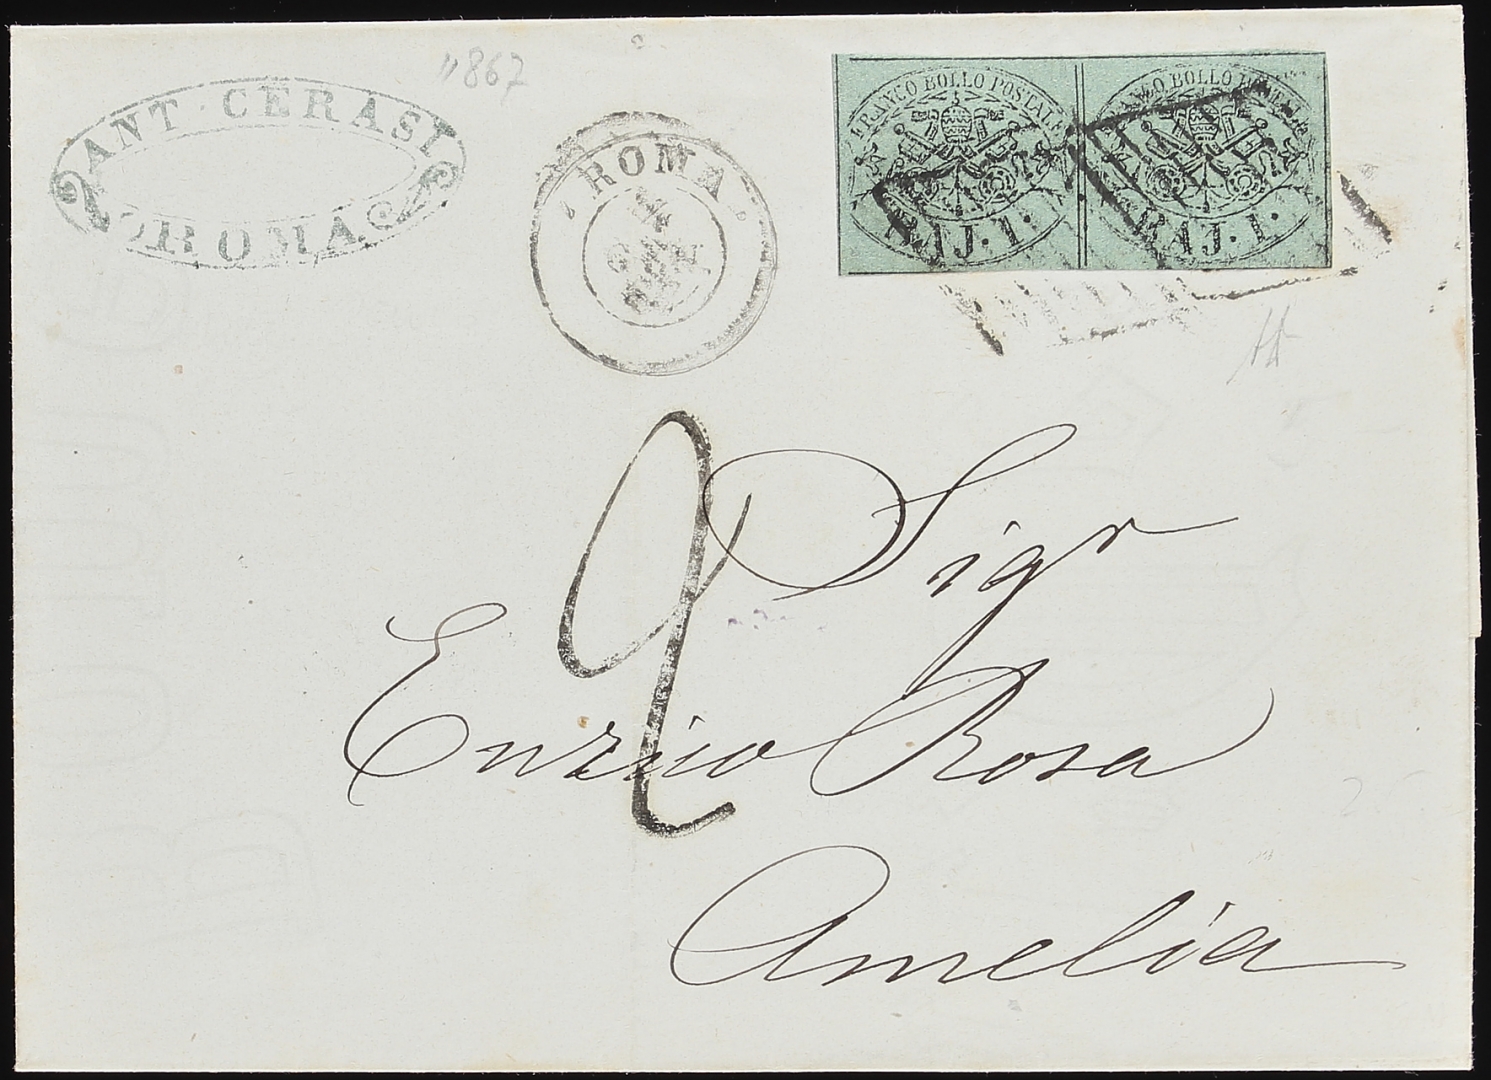 "867
ANT · CERASI
ROMA
ROMA
GEN
FRANCO BOLLO POSTALE
BAJ. 1.
FRANCO BOLLO POSTALE
BAJ. 1.
2
Sigr
Enrico Rosa
Amelia